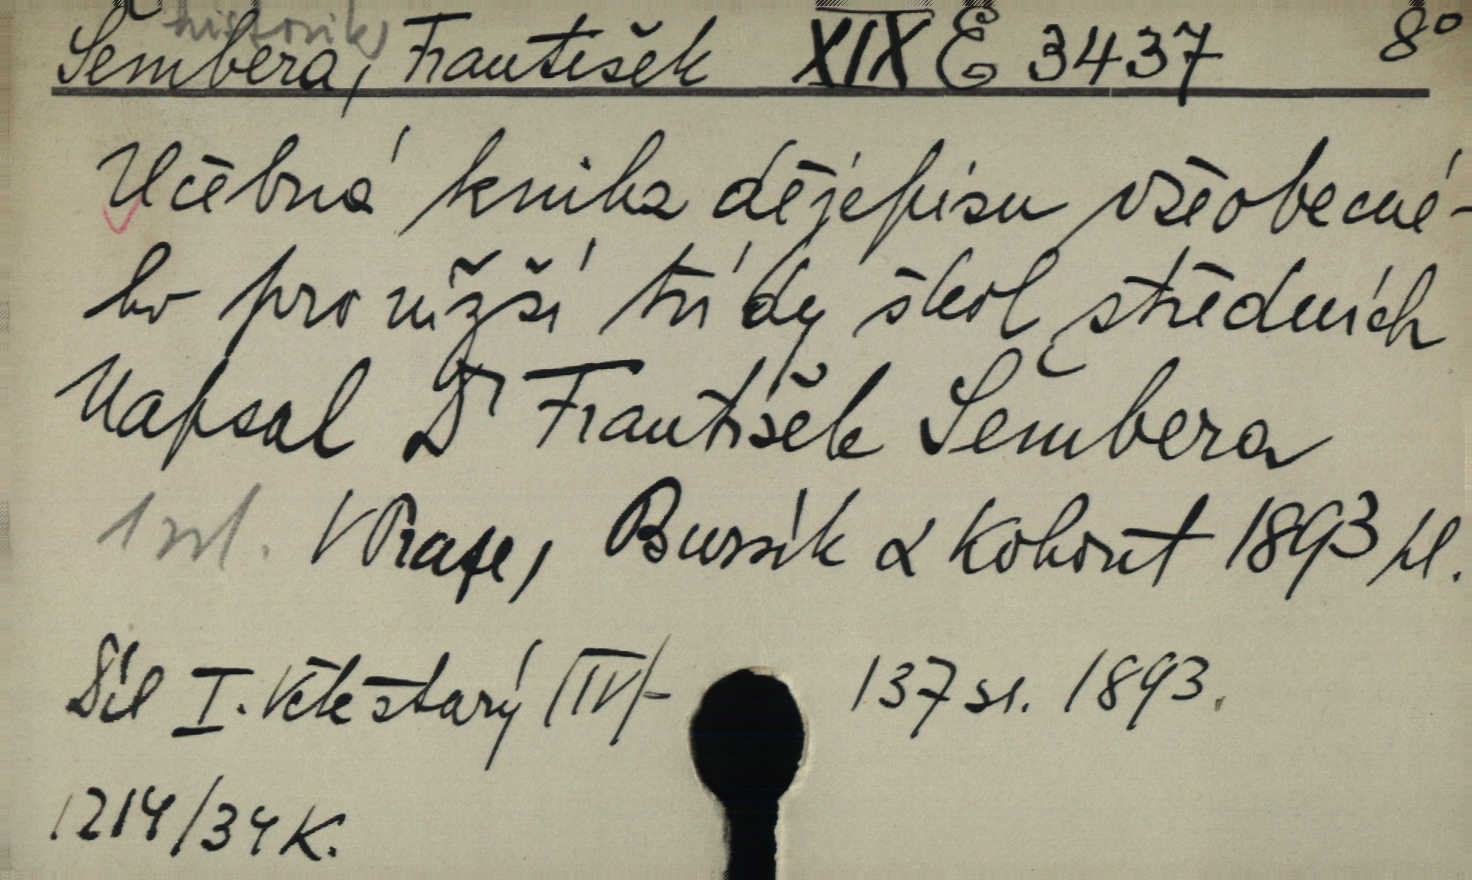 historik
Šembera, František XIX E 3437 8°
Učebná kniha dějepisu všeobecné-
ho pro nižší třídy škol středních
Napsal Dr František Šembera
1 sv. V Praze, Bursík & Kohout 1893
Díl I. Věk starý (IV)- 137 str. 1893.
1214/34 K.